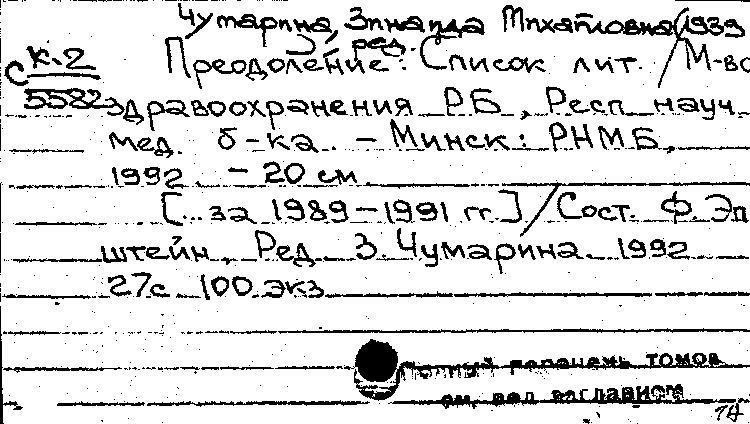 Чумарина, Зинаида Михайловна (1939
ред.
К-2 Преодоление: Список лит. / М-во
с 5582 здравоохранения РБ, Респ науч
мед. б-ка. - Минск: РНМБ,
1992. - 20 см.
[... за 1989-1991 гг.] / Сост. Ф. Эп
штейн, Ред. З. Чумарина. 1992
27с 100 экз
Полный перечень томов
см. под заглавием
14